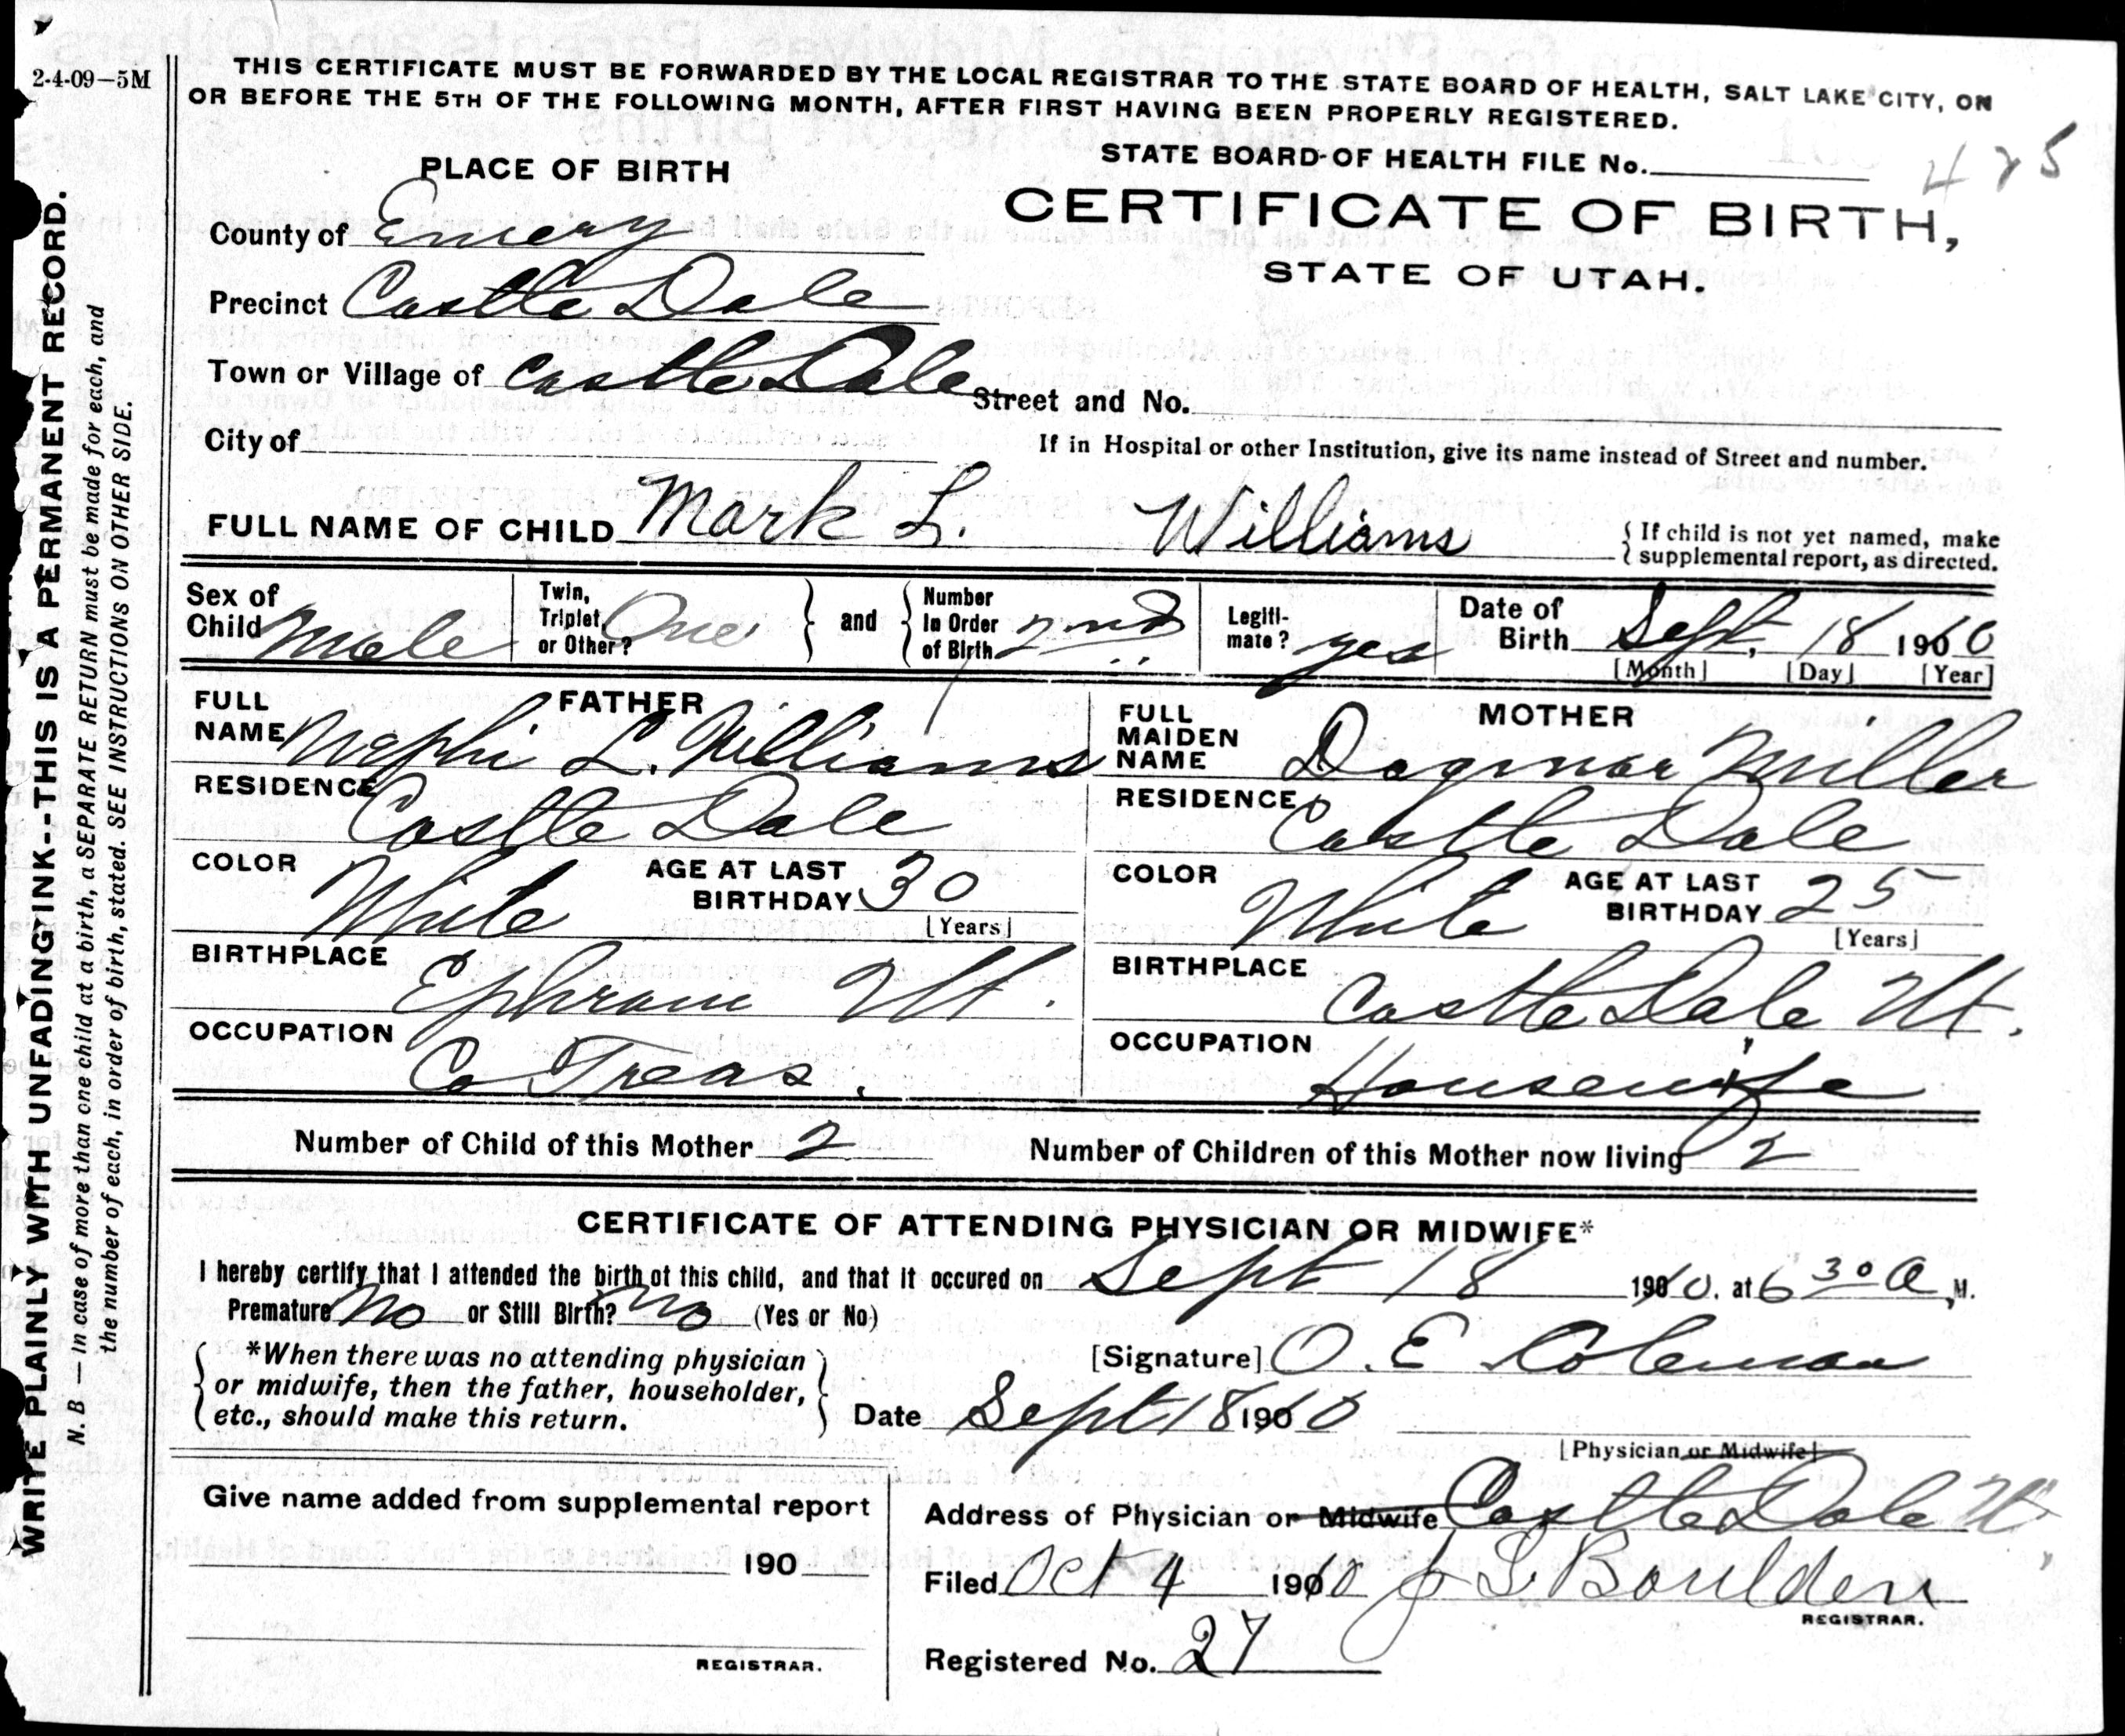 2-4-09-5M
THIS CERTIFICATE MUST BE FORWARDED BY THE LOCAL REGISTRAR TO THE STATE BOARD OF HEALTH, SALT LAKE CITY, ON
OR BEFORE THE 5TH OF THE FOLLOWING MONTH, AFTER FIRST HAVING BEEN PROPERLY REGISTERED.
STATE BOARD OF HEALTH FILE No. 425
CERTIFICATE OF BIRTH,
STATE OF UTAH.
PLACE OF BIRTH
County of Emery
Precinct Castle Dale
Town or Village of Castle Dale Street and No.
City of
If in Hospital or other Institution, give its name instead of Street and number.
FULL NAME OF CHILD Mark L. Williams
{ If child is not yet named, make
{ supplemental report, as directed.
Sex of Child Male
Twin, Triplet, or Other? One } and { Number In Order of Birth 2nd
Legiti-mate? yes
Date of Birth Sept, 18 1910
[Month] [Day] [Year]
FATHER
FULL NAME Nephi L. Williams
RESIDENCE Castle Dale
COLOR White AGE AT LAST BIRTHDAY 30
[Years]
BIRTHPLACE Ephraim Ut.
OCCUPATION Co Treas.
MOTHER
FULL MAIDEN NAME Dagmar Miller
RESIDENCE Castle Dale
COLOR White AGE AT LAST BIRTHDAY 25
[Years]
BIRTHPLACE Castle Dale Ut.
OCCUPATION Housewife
Number of Child of this Mother 2 Number of Children of this Mother now living 2
CERTIFICATE OF ATTENDING PHYSICIAN OR MIDWIFE*
I hereby certify that I attended the birth of this child, and that it occured on Sept 18 1910. at 6 30 A M.
Premature No or Still Birth? No (Yes or No)
*When there was no attending physician
or midwife, then the father, householder,
etc., should make this return.
[Signature] O. E Coleman
Date Sept 18 1910
[Physician or Midwife]
Give name added from supplemental report
190
REGISTRAR.
Address of Physician or Midwife Castle Dale Ut.
Filed Oct 4 1910 J L Boulden
REGISTRAR.
Registered No. 27
WRITE PLAINLY WITH UNFADING INK--THIS IS A PERMANENT RECORD.
N. B — In case of more than one child at a birth, a SEPARATE RETURN must be made for each, and
the number of each, in order of birth, stated. SEE INSTRUCTIONS ON OTHER SIDE.